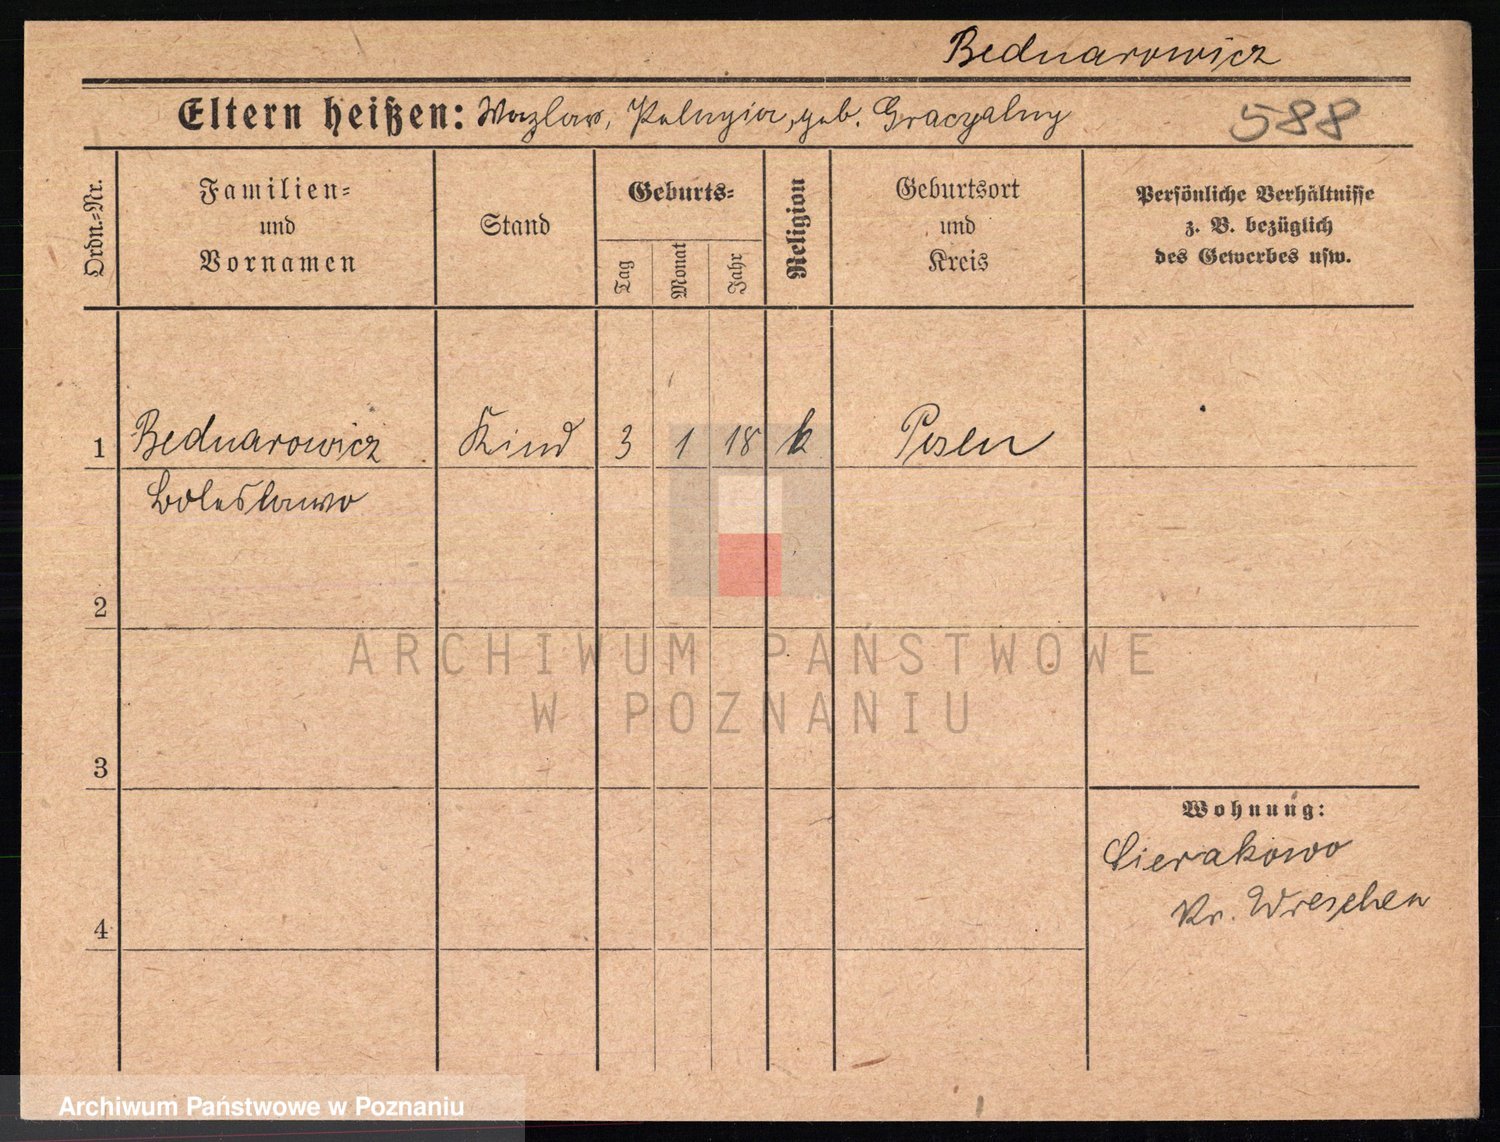 Bednarowicz
Eltern heißen: Wazlaw, Pelagia, geb. Gracyalny
588
Ordn.-Nr.
Familien-
und
Vornamen
Stand
Geburts-
Tag
Monat
Jahr
Religion
Geburtsort
und
Kreis
Persönliche Verhältnisse
z. B. bezüglich
des Gewerbes usw.
1 Bednarowicz Kind 3 1 18 k Posen
Boleslawo
2
3
4
Wohnung:
Sierakowo
Kr. Wreschen
ARCHIWUM PAŃSTWOWE
W POZNANIU
Archiwum Państwowe w Poznaniu